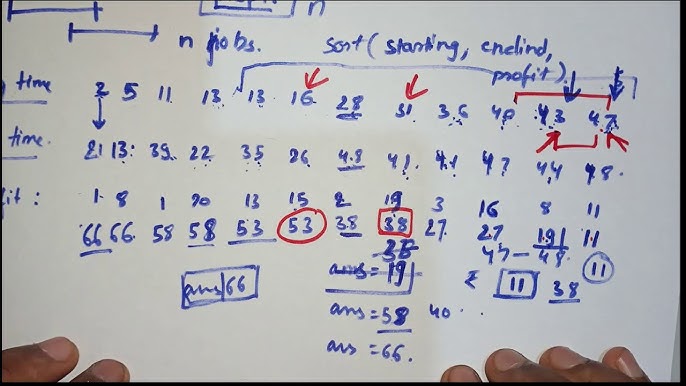 n
n jobs. sort( starting, endind,
profit)
time 2 5 11 13 13 16 28 31 36 40 43 47
time. 21 13 39 22 35 26 48 41 41 47 44 48
fit : 1 8 1 20 13 15 2 19 3 16 8 11
66 66 58 58 53 53 38 38 27 27 19 11
47 - 48 11
ans = 19 11 38
ans 66
ans = 58 40
ans = 66.